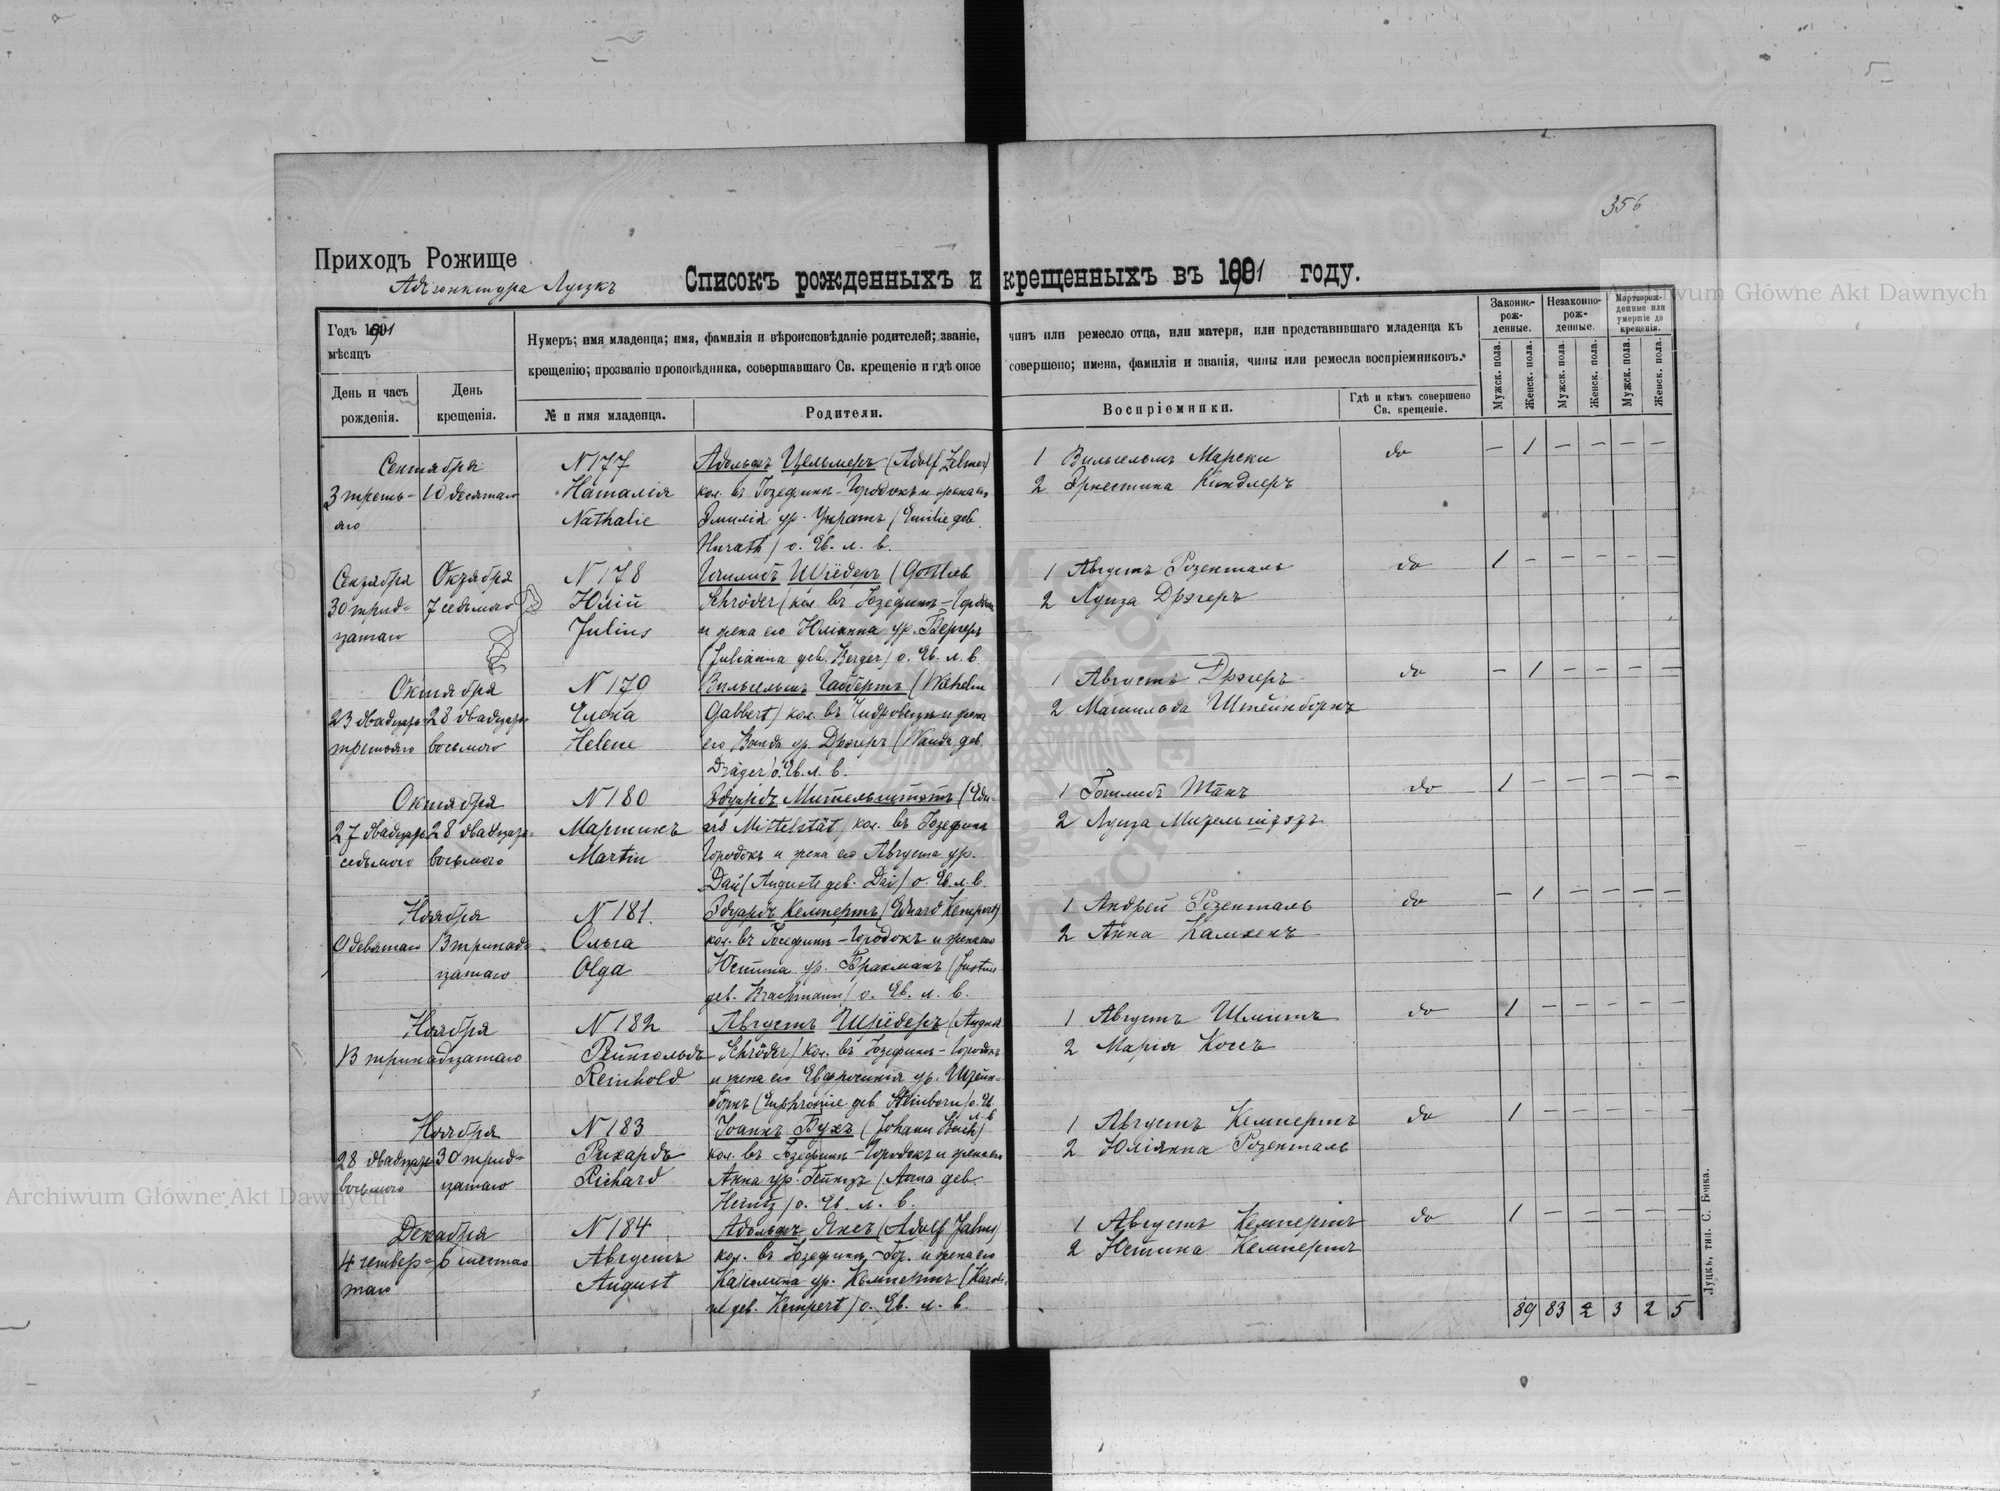 356
Приходъ Рожище
Адъюнктура Луцкъ
Списокъ рожденныхъ и крещенныхъ въ 1891 году.
Годъ 1891
мѣсяцъ
День и часъ рожденія.
День крещенія.
Нумеръ; имя младенца; имя, фамилія и вѣроисповѣданіе родителей; званіе, чинъ или ремесло отца, или матери, или представившаго младенца къ
крещенію; прозваніе проповѣдника, совершавшаго Св. крещеніе и гдѣ оное совершено; имена, фамиліи и званія, чины или ремесла воспріемниковъ.
№ и имя младенца.
Родители.
Воспріемники.
Гдѣ и кѣмъ совершено Св. крещеніе.
Законно-рож-денные.
Незаконно-рож-денные.
Мертворож-денные или умершіе до крещенія.
Мужск. пола.
Женск. пола.
Мужск. пола.
Женск. пола.
Мужск. пола.
Женск. пола.
Сентября
3 треть-
яго
10 десятаго
N 177
Наталія
Nathalie
Адольфъ Цельмеръ (Adolf Zelmer)
кол. въ Іозефинъ-Городокъ и жена его
Эмилія ур. (Emilie geb.
) о. Ев. л. в.
1 Вильгельмъ Марски
2 Эрнестина Киндлеръ
do
— 1 — — — —
Сентября
30 трид-
цатаго
Октября
7 седьмого
N 178
Юлій
Julius
Готлибъ Шрёдеръ (Gottlieb
Schröder) кол. въ Іозефинъ-Городокъ
и жена его Юліанна ур. Бергеръ
(Julianna geb. Berger) о. Ев. л. в.
1 Августъ Розенталь
2 Луиза Дрэгеръ
do
1 — — — — —
Октября
23 двадцать
третьяго
28 двадцать
восьмого
N 179
Елена
Helene
Вильгельмъ Габбертъ (Wilhelm
Gabbert) кол. въ и жена
его Ванда ур. Дрэгеръ (Wanda geb.
Dräger) о. Ев. л. в.
1 Августъ Дрэгеръ
2 Матильда Штейнборнъ
do
— 1 — — — —
Октября
27 двадцать
седьмого
28 двадцать
восьмого
N 180
Мартинъ
Martin
Эдуардъ Мительштетъ (Edu-
ard Mittelstät) кол. въ Іозефинъ
Городокъ и жена его Августа ур.
Дай (Auguste geb. Dai) о. Ев. л. в.
1 Готлибъ
2 Луиза Мительштэдъ
do
1 — — — — —
Ноября
9 девятаго
13 тринад-
цатаго
N 181.
Ольга
Olga
Эдуардъ Кемпертъ (Eduard Kempert)
кол. въ Іозефинъ-Городокъ и жена его
Юстина ур. Бракманъ (Justine
geb. Brachmann) о. Ев. л. в.
1 Андрей Розенталь
2 Анна
do
— 1 — — — —
Ноября
13 тринадцатаго
N 182
Рейнгольдъ
Reinhold
Августъ Шрёдеръ (August
Schröder) кол. въ Іозефинъ-Городокъ
и жена его Ефросинія ур. Штейн-
борнъ (Euphrosine geb. Steinborn) о. Ев.
л. в.
1 Августъ Шмитъ
2 Марія
do
1 — — — — —
Ноября
28 двадцать
восьмого
30 трид-
цатаго
N 183
Рихардъ
Richard
Іоаннъ Бухъ (Johann Buch)
кол. въ Іозефинъ-Городокъ и жена его
Анна ур. Гейнцъ (Anna geb.
Heintz) о. Ев. л. в.
1 Августъ Кемпертъ
2 Юліянна Розенталь
do
1 — — — — —
Декабря
4 четвер-
таго
6 шестаго
N 184
Августъ
August
Адольфъ Янсъ (Adolf Jahns)
кол. въ Іозефинъ-Гор. и жена его
Каролина ур. Кемпертъ (Karoli-
ne geb. Kempert) о. Ев. л. в.
1 Августъ Кемпертъ
2 Юстина Кемпертъ
do
1 — — — — —
89 83 2 3 2 5
Луцкъ, тип. С. Бонка.
Archiwum Główne Akt Dawnych
Archiwum Główne Akt Dawnych